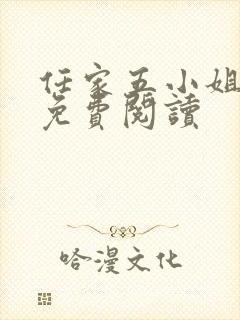 任家五小姐
免費閱讀
哈漫文化